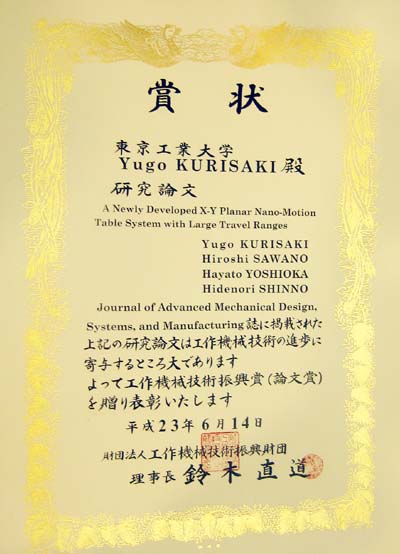 賞状
東京工業大学
Yugo KURISAKI 殿
研究論文
A Newly Developed X-Y Planar Nano-Motion
Table System with Large Travel Ranges
Yugo KURISAKI
Hiroshi SAWANO
Hayato YOSHIOKA
Hidenori SHINNO
Journal of Advanced Mechanical Design,
Systems, and Manufacturing 誌に掲載された
上記の研究論文は工作機械技術の進歩に
寄与するところ大であります
よって工作機械技術振興賞(論文賞)
を贈り表彰いたします
平成23年6月14日
財団法人工作機械技術振興財団
理事長 鈴木直道